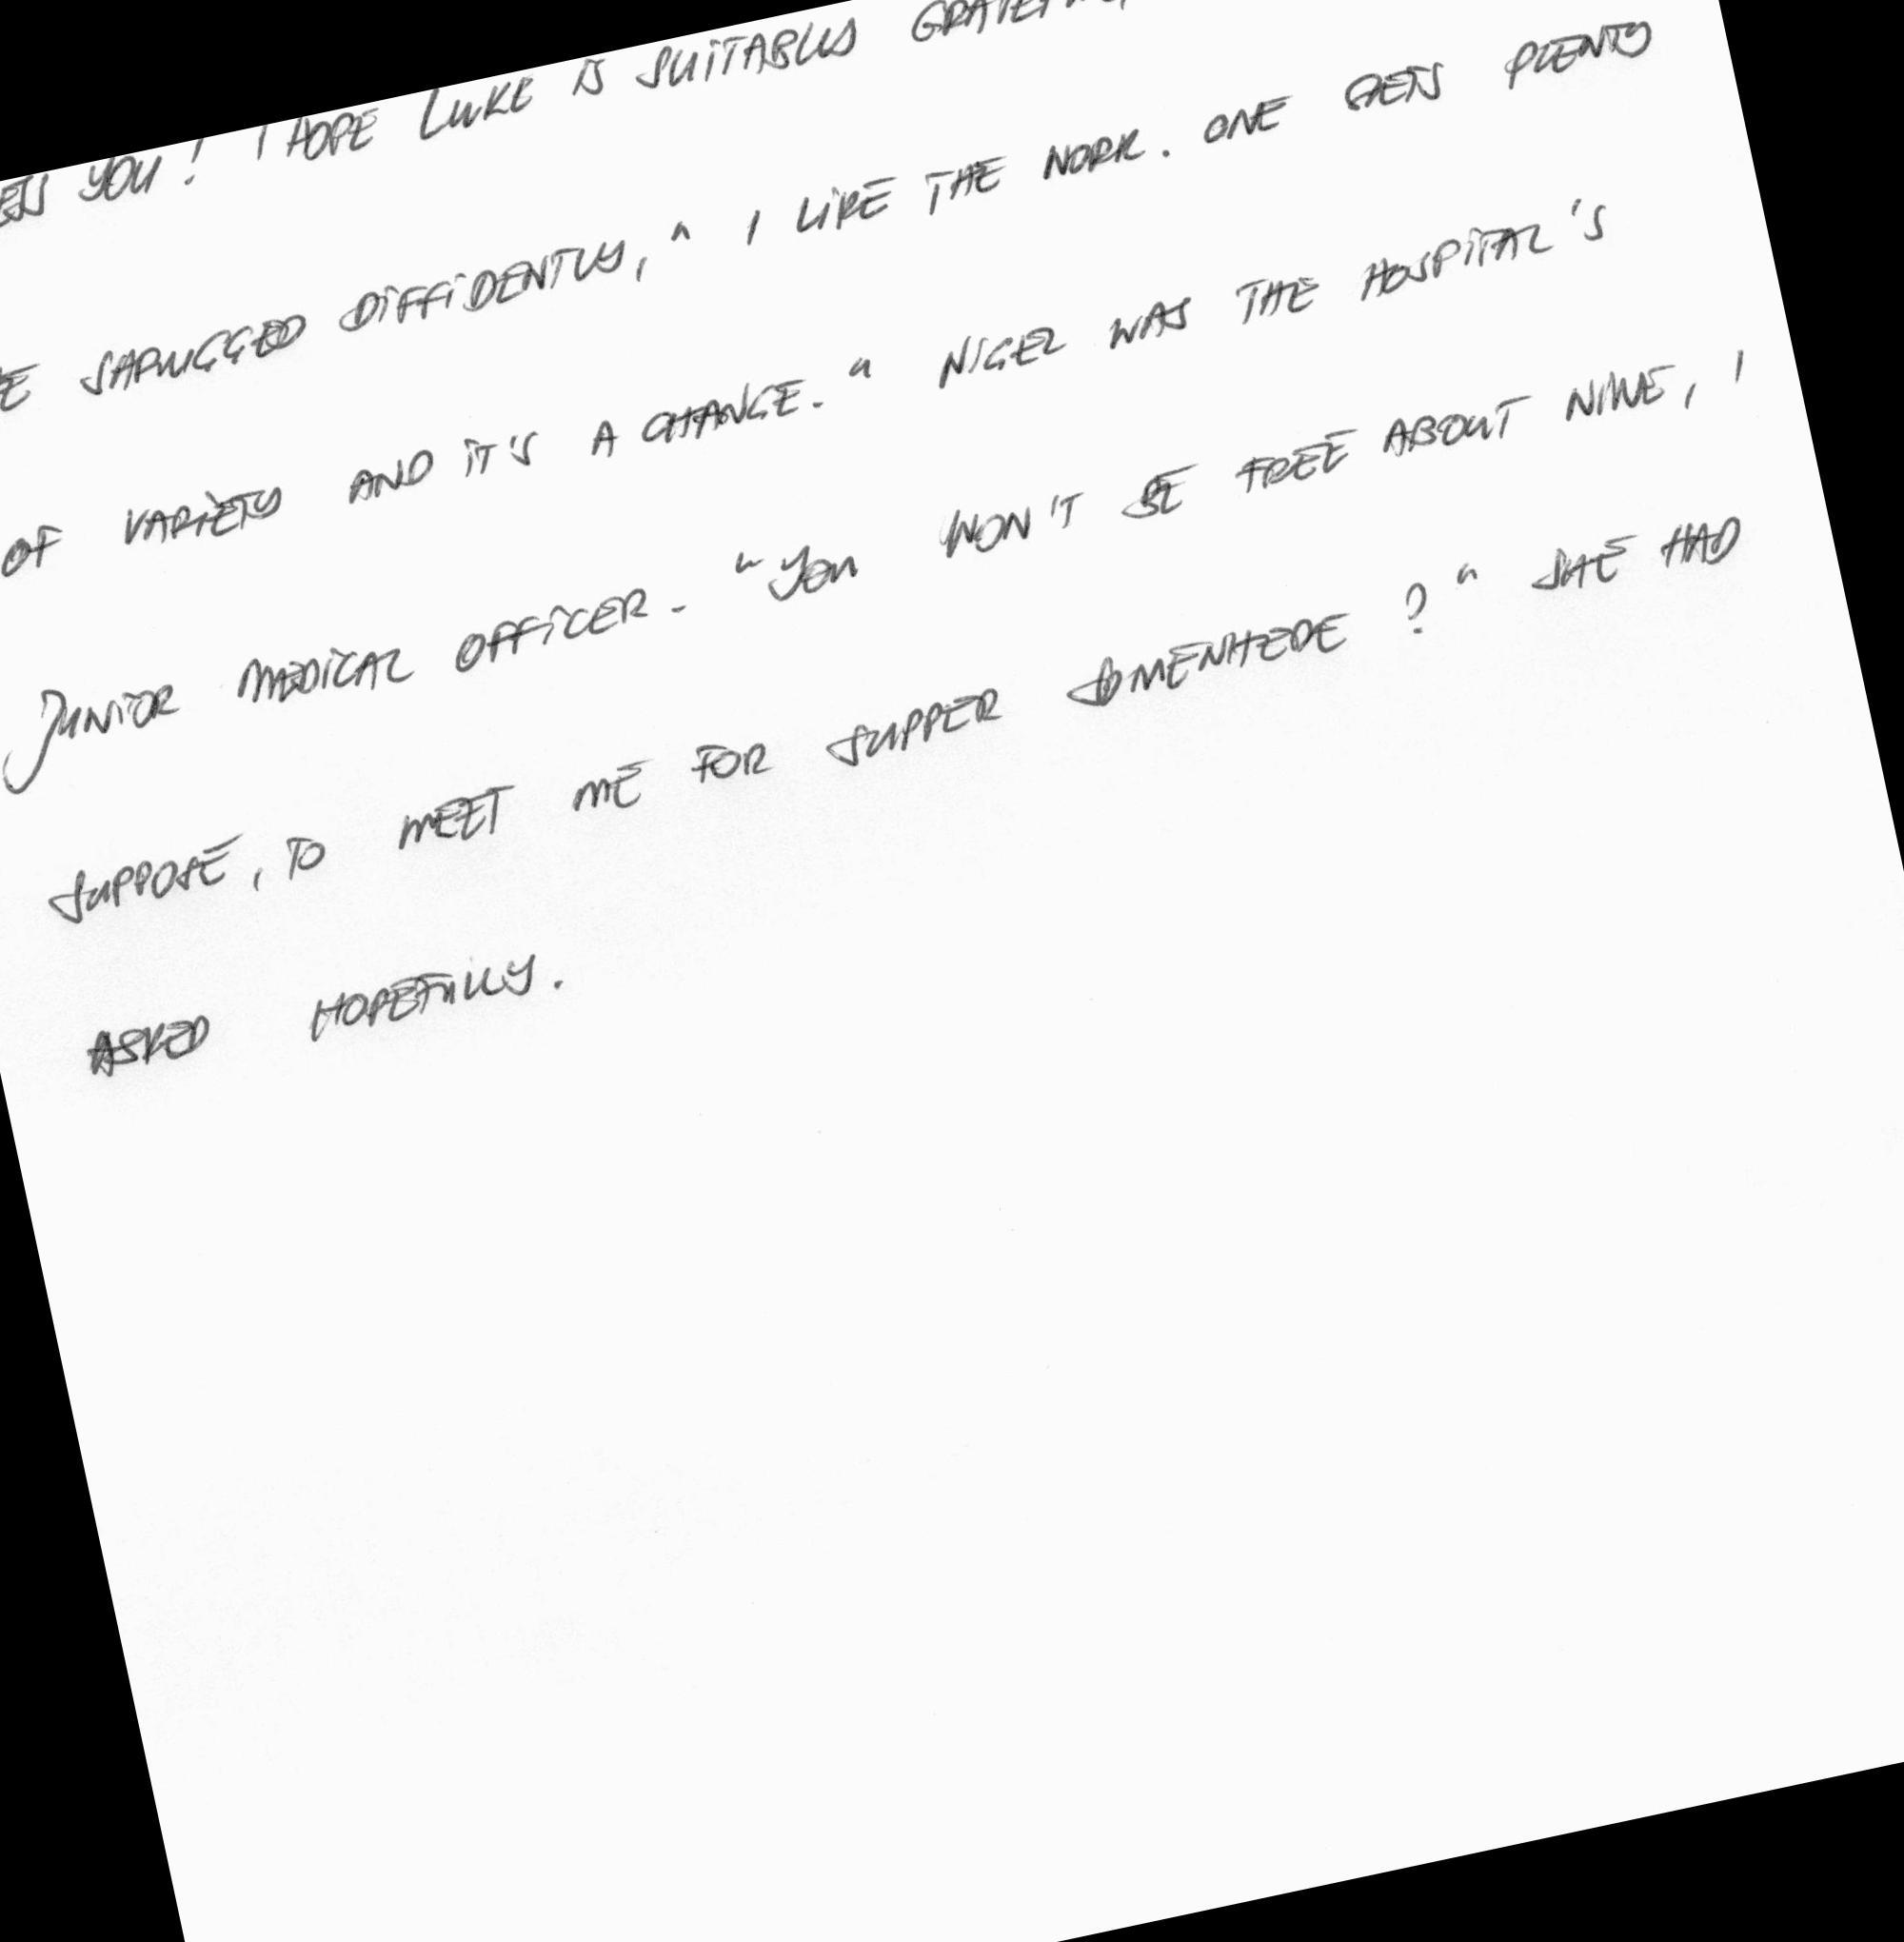 YOU! I HOPE LUKE IS SUITABLY
SHRUGGED DIFFIDENTLY, " I LIKE THE WORK. ONE GETS PLENTY
OF VARIETY AND IT'S A CHANGE. " NIGEL WAS THE HOSPITAL'S
JUNIOR MEDICAL OFFICER. "YOU WON'T BE FREE ABOUT NINE, I
SUPPOSE, TO MEET ME FOR SUPPER SOMEWHERE ? " SHE HAD
ASKED HOPEFULLY.